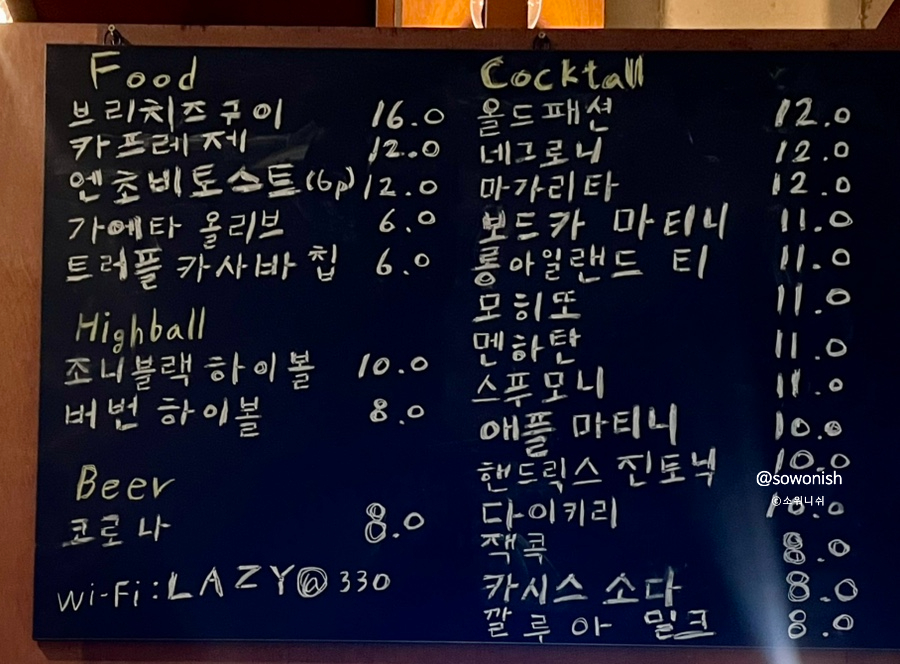 Food
브리치즈구이 16.0
카프레제 12.0
엔초비토스트(6p) 12.0
가에타 올리브 6.0
트러플 카사바 칩 6.0
Highball
조니블랙 하이볼 10.0
버번 하이볼 8.0
Beer
코로나 8.0
Wi-Fi: LAZY@330
Cocktall
올드패션 12.0
네그로니 12.0
마가리타 12.0
보드카 마티니 11.0
롱아일랜드 티 11.0
모히또 11.0
멘하탄 11.0
스푸모니 11.0
애플 마티니 10.0
핸드릭스 진토닉 10.0
다이키리 10.0
잭콕 8.0
카시스 소다 8.0
깔루아 밀크 8.0
@sowonish
©소워니쉬